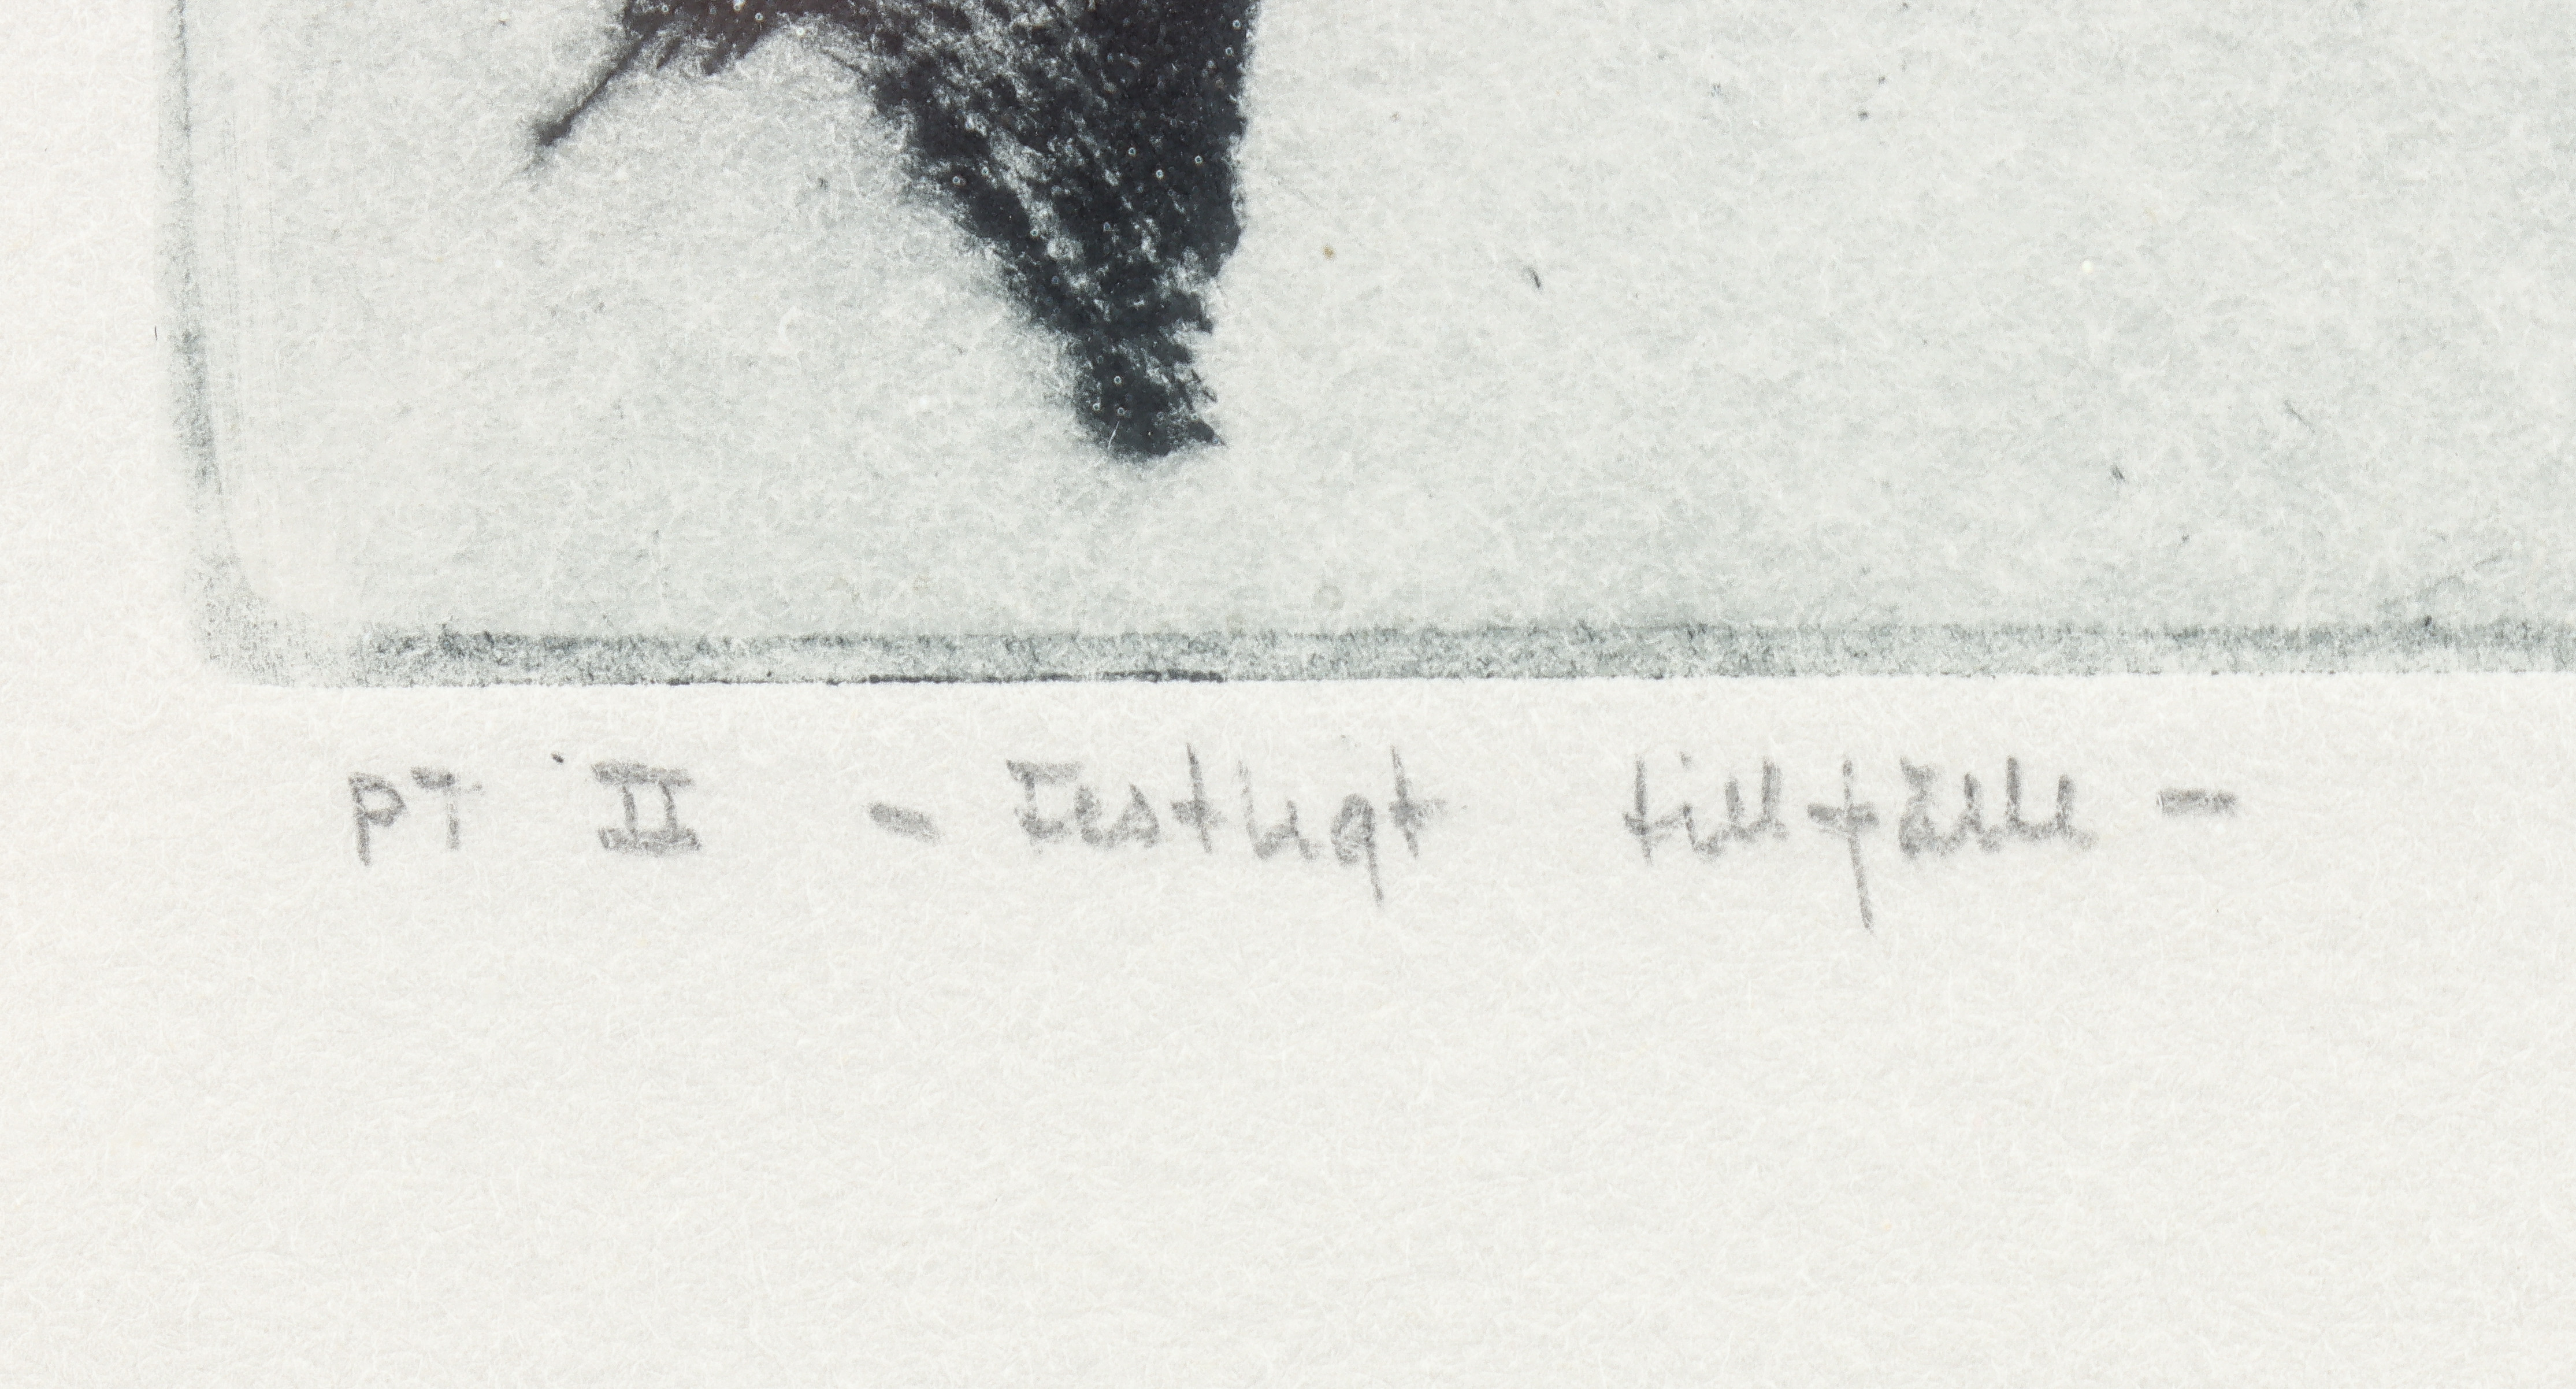 PT II - Festligt tillfälle -